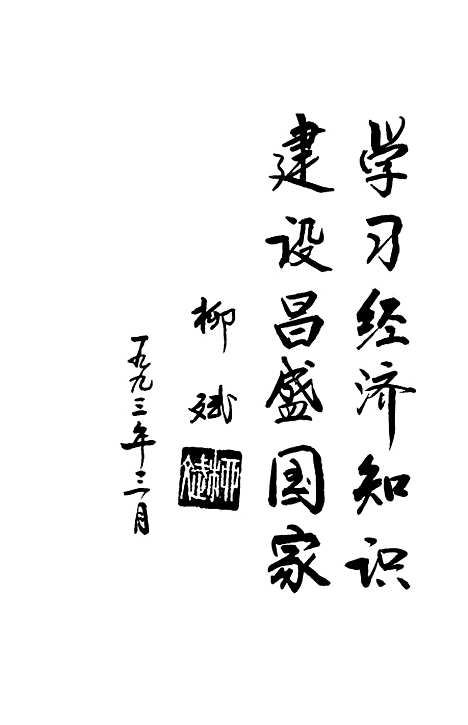 学习经济知识
建设昌盛国家
柳斌
柳斌
一九九三年三月